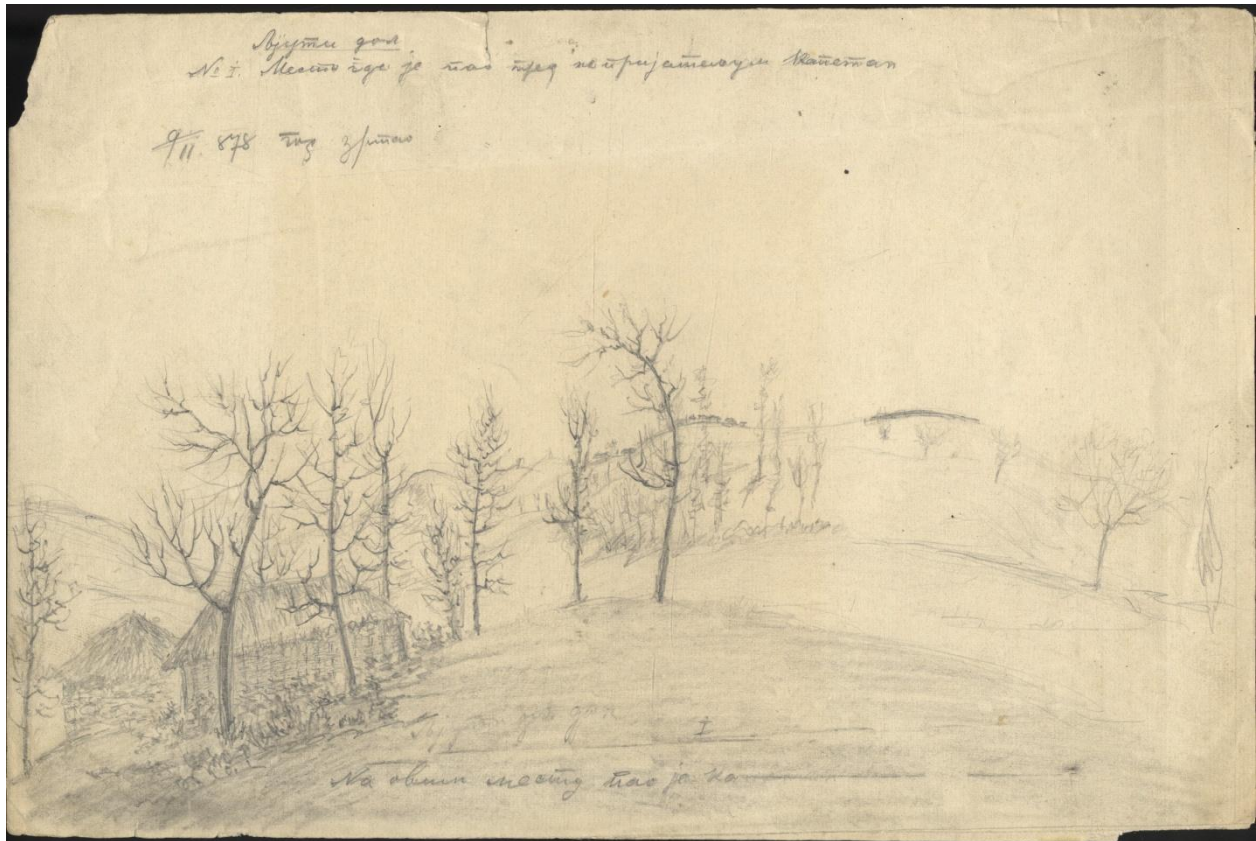 Љути дол
№ I. Место где је пао пред непријатељум капетан
9/II. 878 год
дол
На овим месту пао је ка